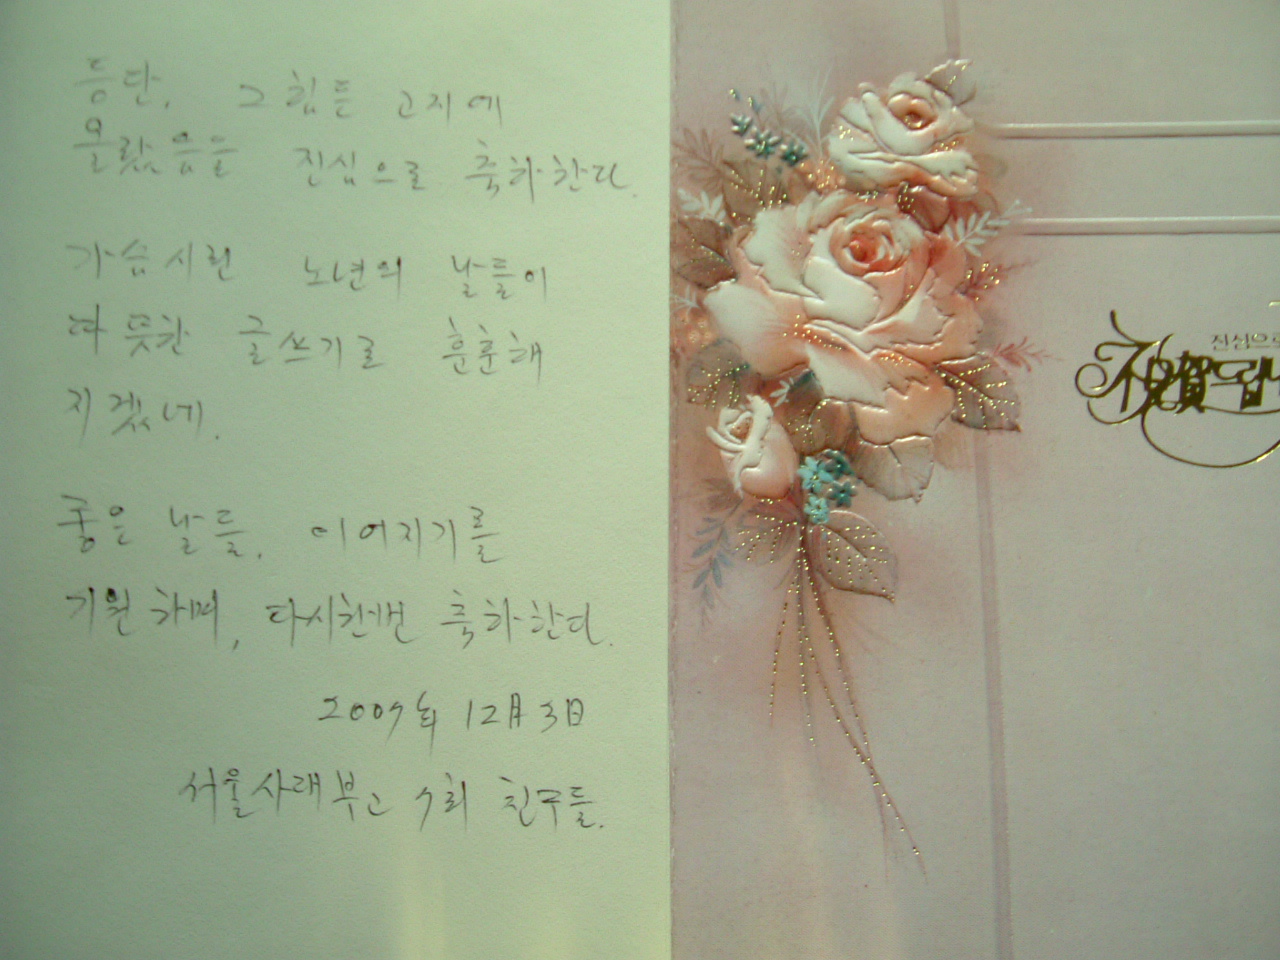 등단, 그 힘든 고지에
올랐음을 진심으로 축하한다.
가슴시린 노년의 날들이
따뜻한 글쓰기로 훈훈해
지겠네.
좋은 날들, 이어지기를
기원하며, 다시한번 축하한다.
2009年 12月 3日
서울사대부고 9회 친구들.
진심으로
祝賀드립니